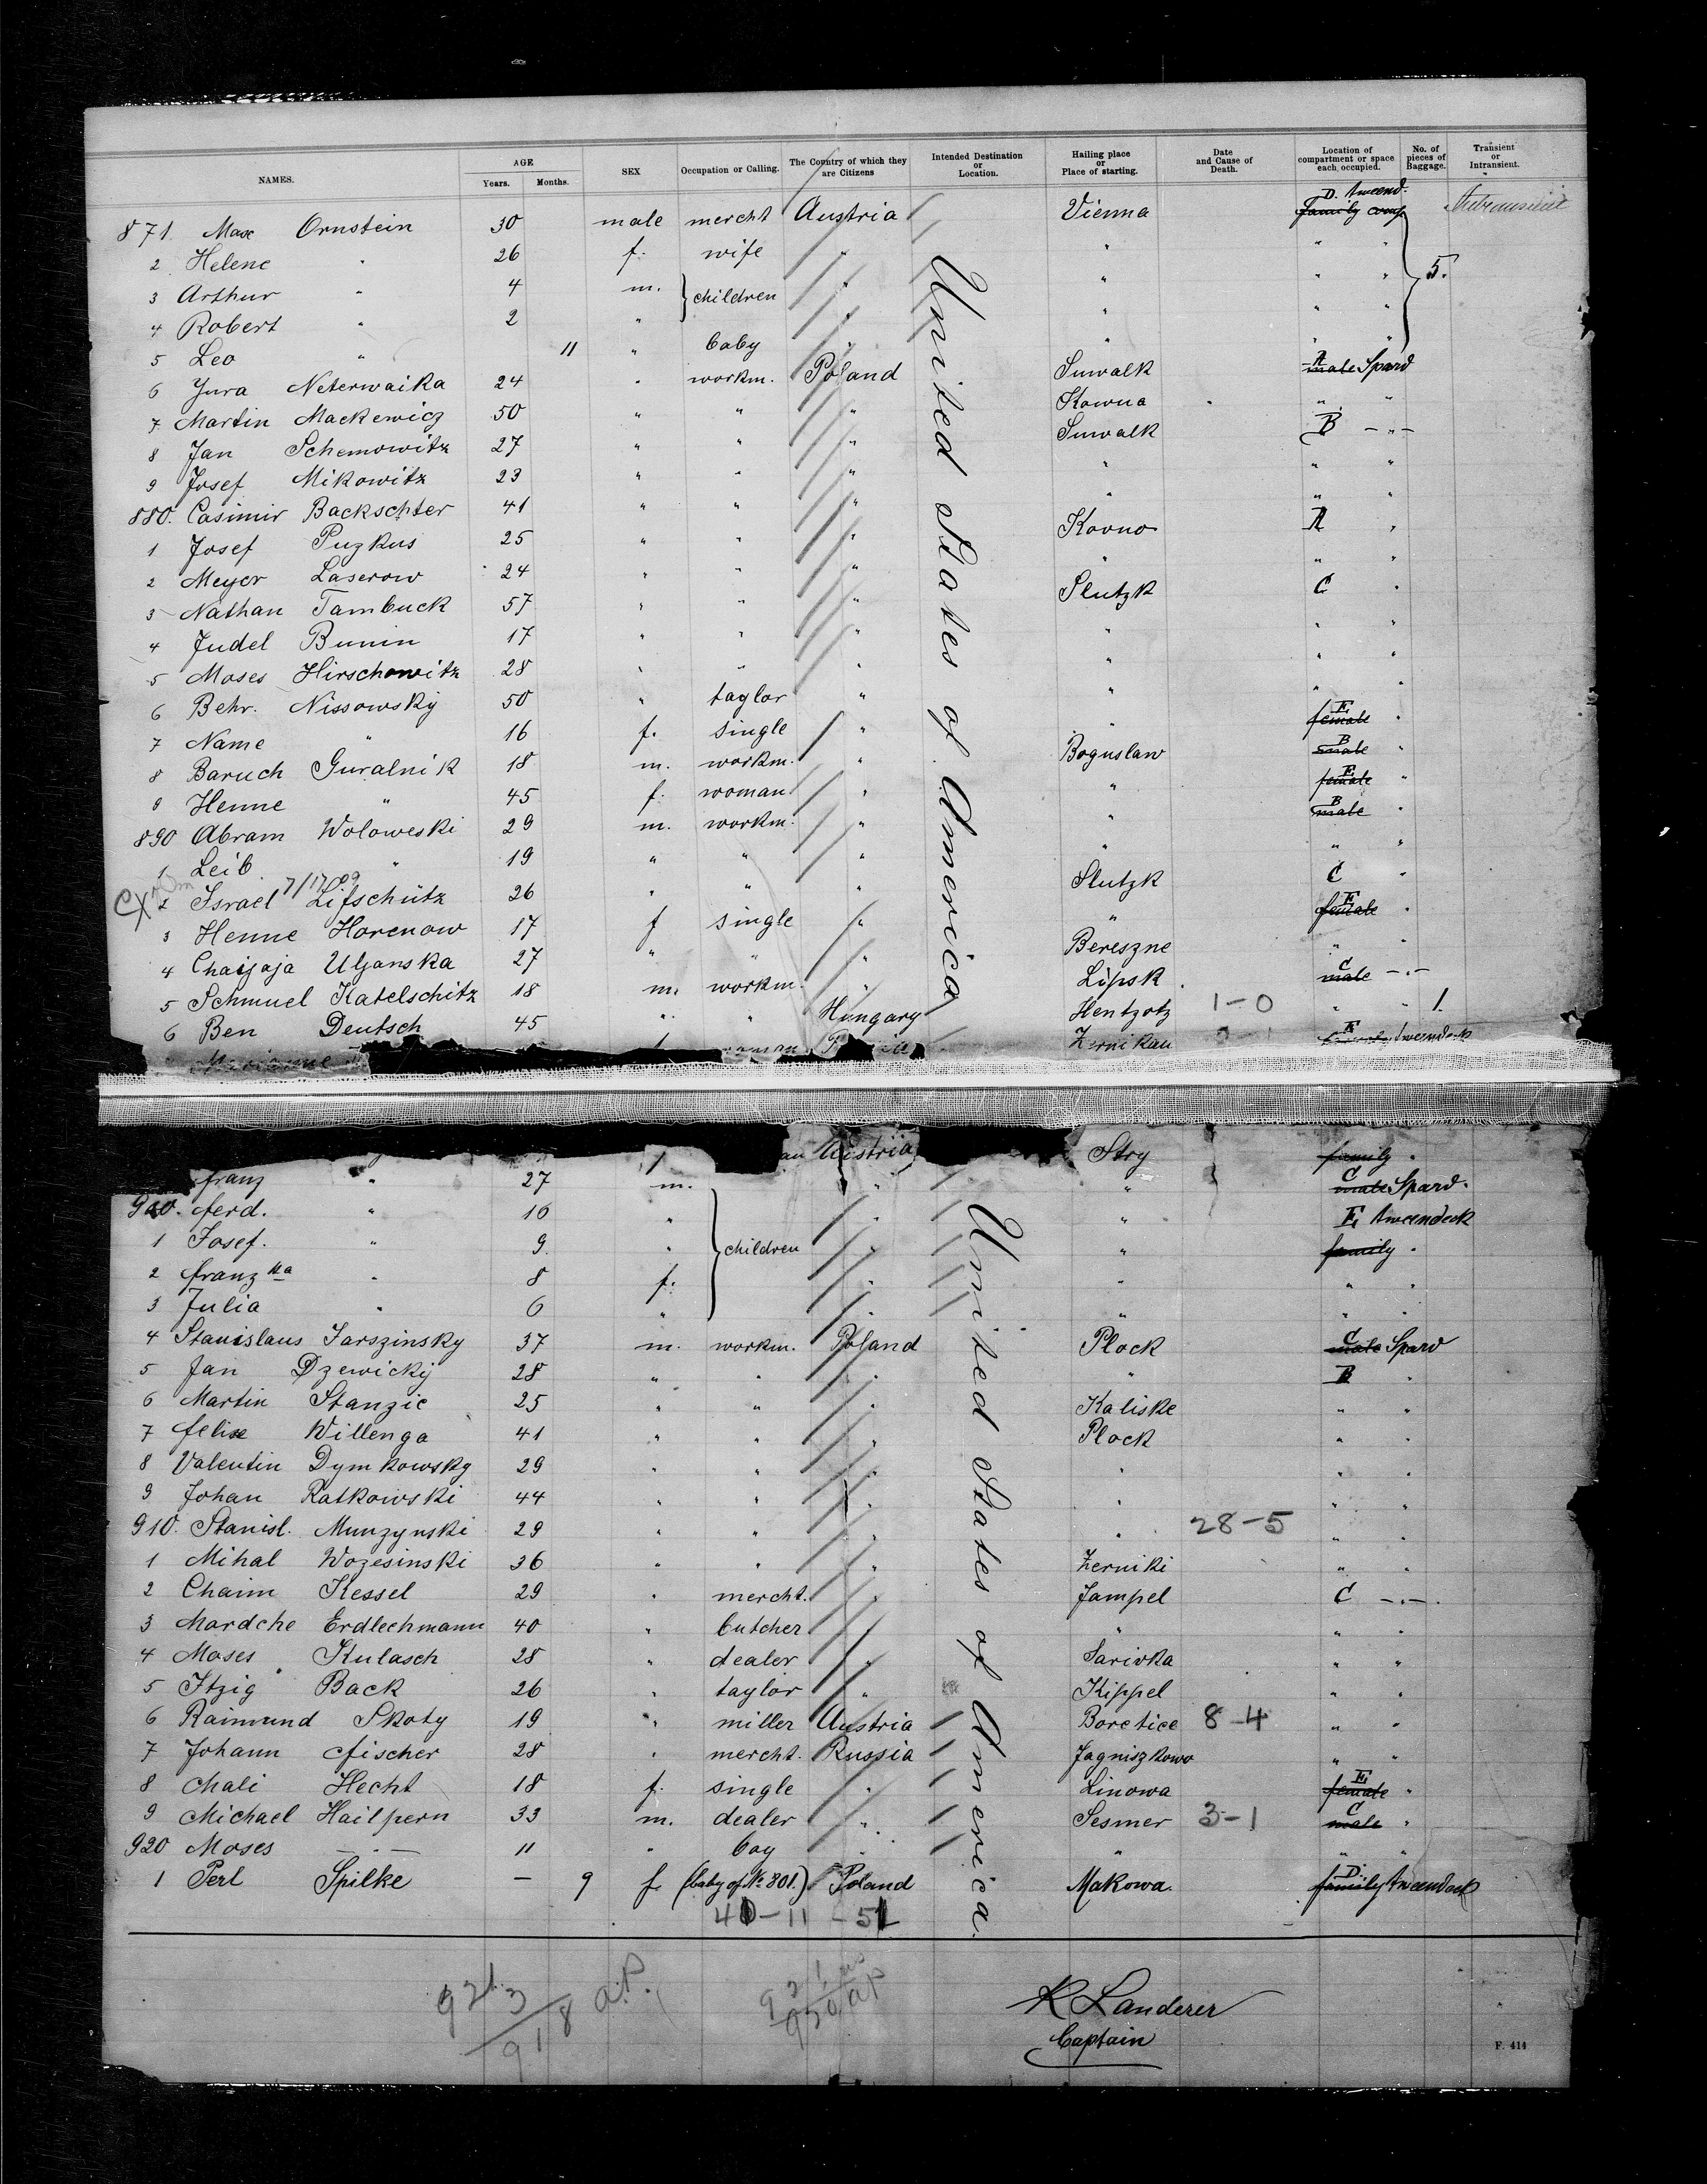 NAMES. AGE Years. Months. SEX Occupation or Calling. The Country of which they are Citizens Intended Destination or Location. Hailing place or Place of starting. Date and Cause of Death. Location of compartment or space each occupied. No. of pieces of Baggage. Transient or Intransient.
871. Max Ornstein 30 male mercht Austria Vienna family comp D. tweend.
2 Helene " 26 f. wife " " " "
3 Arthur " 4 m. children " " " " 5.
4 Robert " 2 " " " " "
5 Leo " 11 " baby " " " "
6 Jura Neterwaika 24 " workm. Poland Suwalk male A Spard
7 Martin Mackewicz 50 " " " Kowna " "
8 Jan Schemowitz 27 " " " Suwalk B - " -
9 Josef Mikowitz 23 " " " " " "
880. Casimir Backschter 41 " " " " " "
1 Josef Puzkus 25 " " " Kovno A "
2 Meyer Laserow 24 " " " " " "
3 Nathan Tambuck 57 " " " Slutzk C "
4 Judel Bunin 17 " " " " " "
5 Moses Hirschowitz 28 " " " " " "
6 Behr. Nissowsky 50 " taylor " " " "
7 Name " 16 f. single " " female E "
8 Baruch Guralnik 18 m. workm. " Boguslaw male B "
9 Henne " 45 f. woman " " female E "
890 Abram Woloweski 29 m. workm. " " male B "
1 Leib " 19 " " " " " "
2 Israel Lifschütz 7/17/09 26 " " " Slutzk C "
3 Henne Horenow 17 f single " " female E "
4 Chaijaja Uljanska 27 " " " Bereszne " "
5 Schmuel Katelschitz 18 m. workm. " Lipsk male C - " -
6 Ben Deutsch 45 " " Hungary Hentzotz 1-0 " " 1.
Zernikau tweendeck
United States of America
Austria Stry family "
franz " 27 m. " " male C Spard.
900. ferd. " 10 " children " " E tweendeck
1 Josef. " 9. " " " family "
2 franz ka " 8 f. " " " "
3 Julia " 6 " " " " "
4 Stanislaus Jarszinsky 37 m. workm. Poland Plock male C Spard
5 Jan Dzewicky 28 " " " " B "
6 Martin Stanzic 25 " " " Kaliske " "
7 felix Willenga 41 " " " Plock " "
8 Valentin Dymkowsky 29 " " " " " "
9 Johan Ratkowski 44 " " " " " "
910. Stanisl. Munzynski 29 " " " " 28-5 " "
1 Mihal Wozesinski 36 " " " Zerniki " "
2 Chaim Kessel 29 " mercht. " Jampel C - " -
3 Mardche Erdlechmann 40 " butcher " " " "
4 Moses Kulasch 28 " dealer " Sarivka " "
5 Itzig Back 26 " taylor " Kippel " "
6 Raimund Skoty 19 " miller Austria Boretice 8-4 " "
7 Johann fischer 28 " mercht. Russia Jagniszkowo " "
8 Mali Hecht 18 f. single " Linowa female E "
9 Michael Hailpern 33 m. dealer " Sesmer 3-1 male C "
920 Moses - " - 11 " boy " " " "
1 Perl Spilke - 9 f. (baby of No 801.) Poland Makowa. family D. tweendeck
United States of America.
921 3 / 918 a.P.
R Landerer
Captain
F. 414